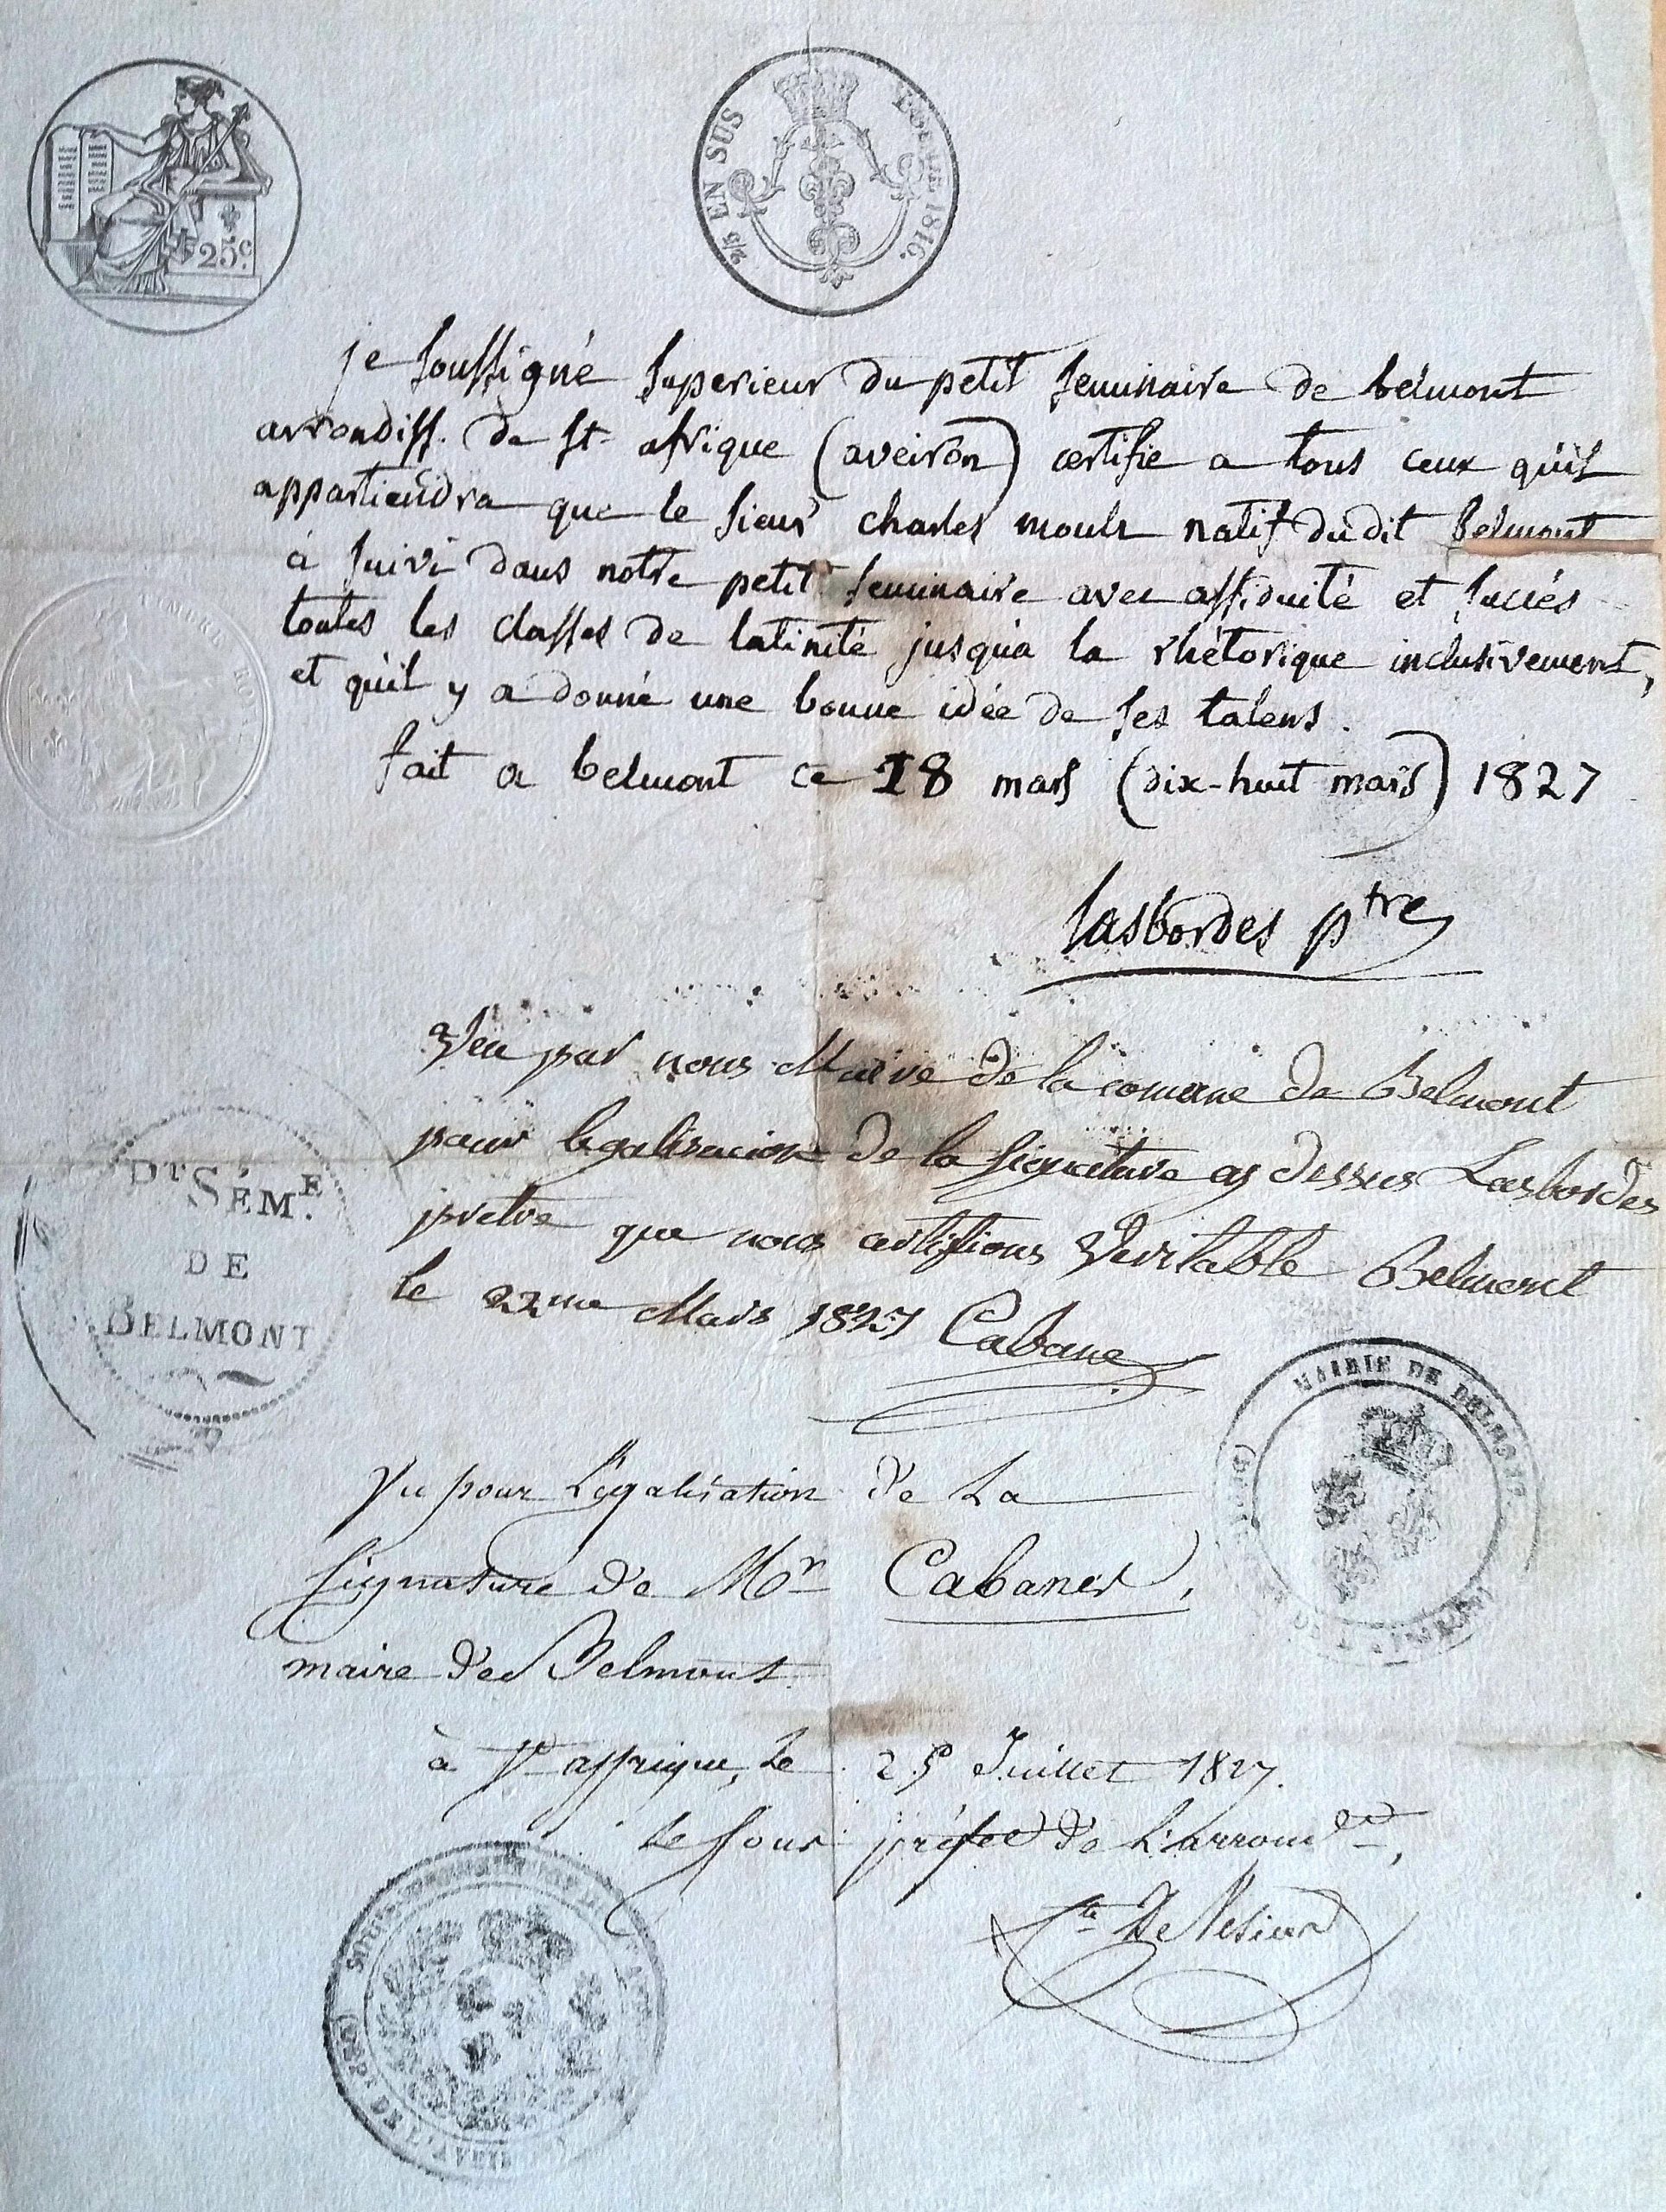 25c.
2/5 EN SUS
1816.
je soussigné superieur du petit seminaire de belmont
arrondiss. de st. afrique (aveiron) certifie a tous ceux qu'il
appartiendra que le sieur charles mouls natif du dit Belmont
à suivi dans notre petit seminaire avec assiduité et succés
toutes les classes de latinité jusqu'a la rhétorique inclusivement,
et qu'il y a donné une bonne idée de ses talens.
fait a belmont ce 18 mars (dix-huit mars) 1827
TIMBRE ROYAL
lasbordes ptre
Veu par nous Maire de la comune de Belmont
pour legalisacion de la signature cy dessus Lasbordes
pretre que nous certifions Veritable Belmont
le 22me Mars 1827 Cabane
DT SÉME.
DE
BELMONT
MAIRIE DE BELMONT
Vu pour Légalisation de La
signature de Mr Cabanes,
maire de Belmont
à St affrique, le 25 Juillet 1827.
Le sous préfet de L'arrondt,
De
DE L'AVEIRON